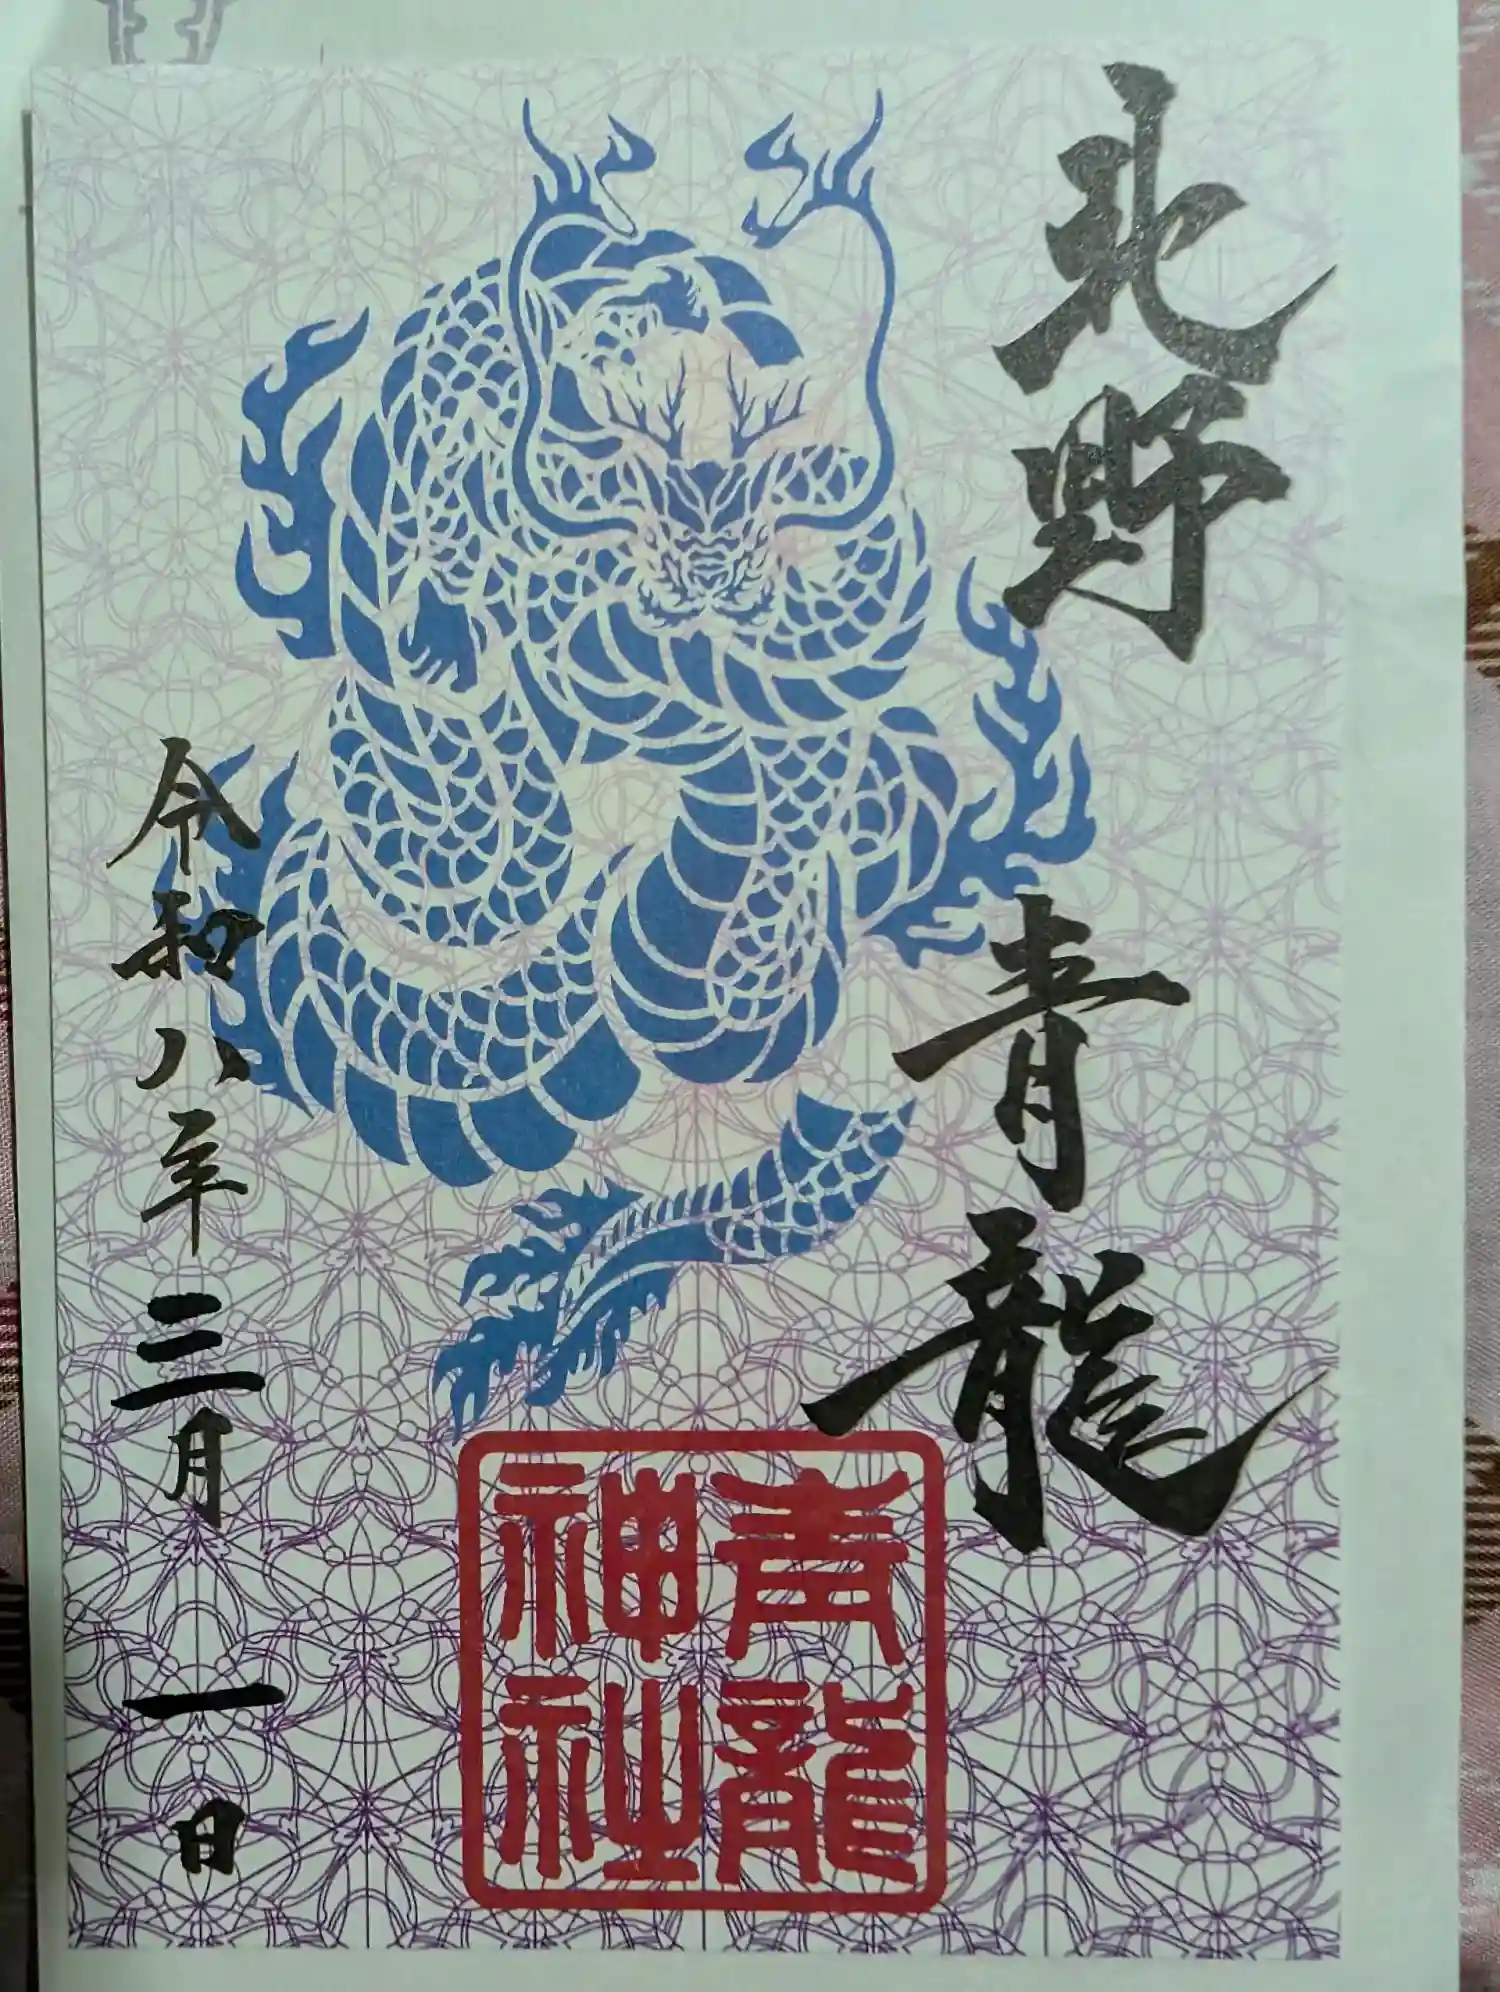 北野
青龍
青龍
神社
令和八年三月一日